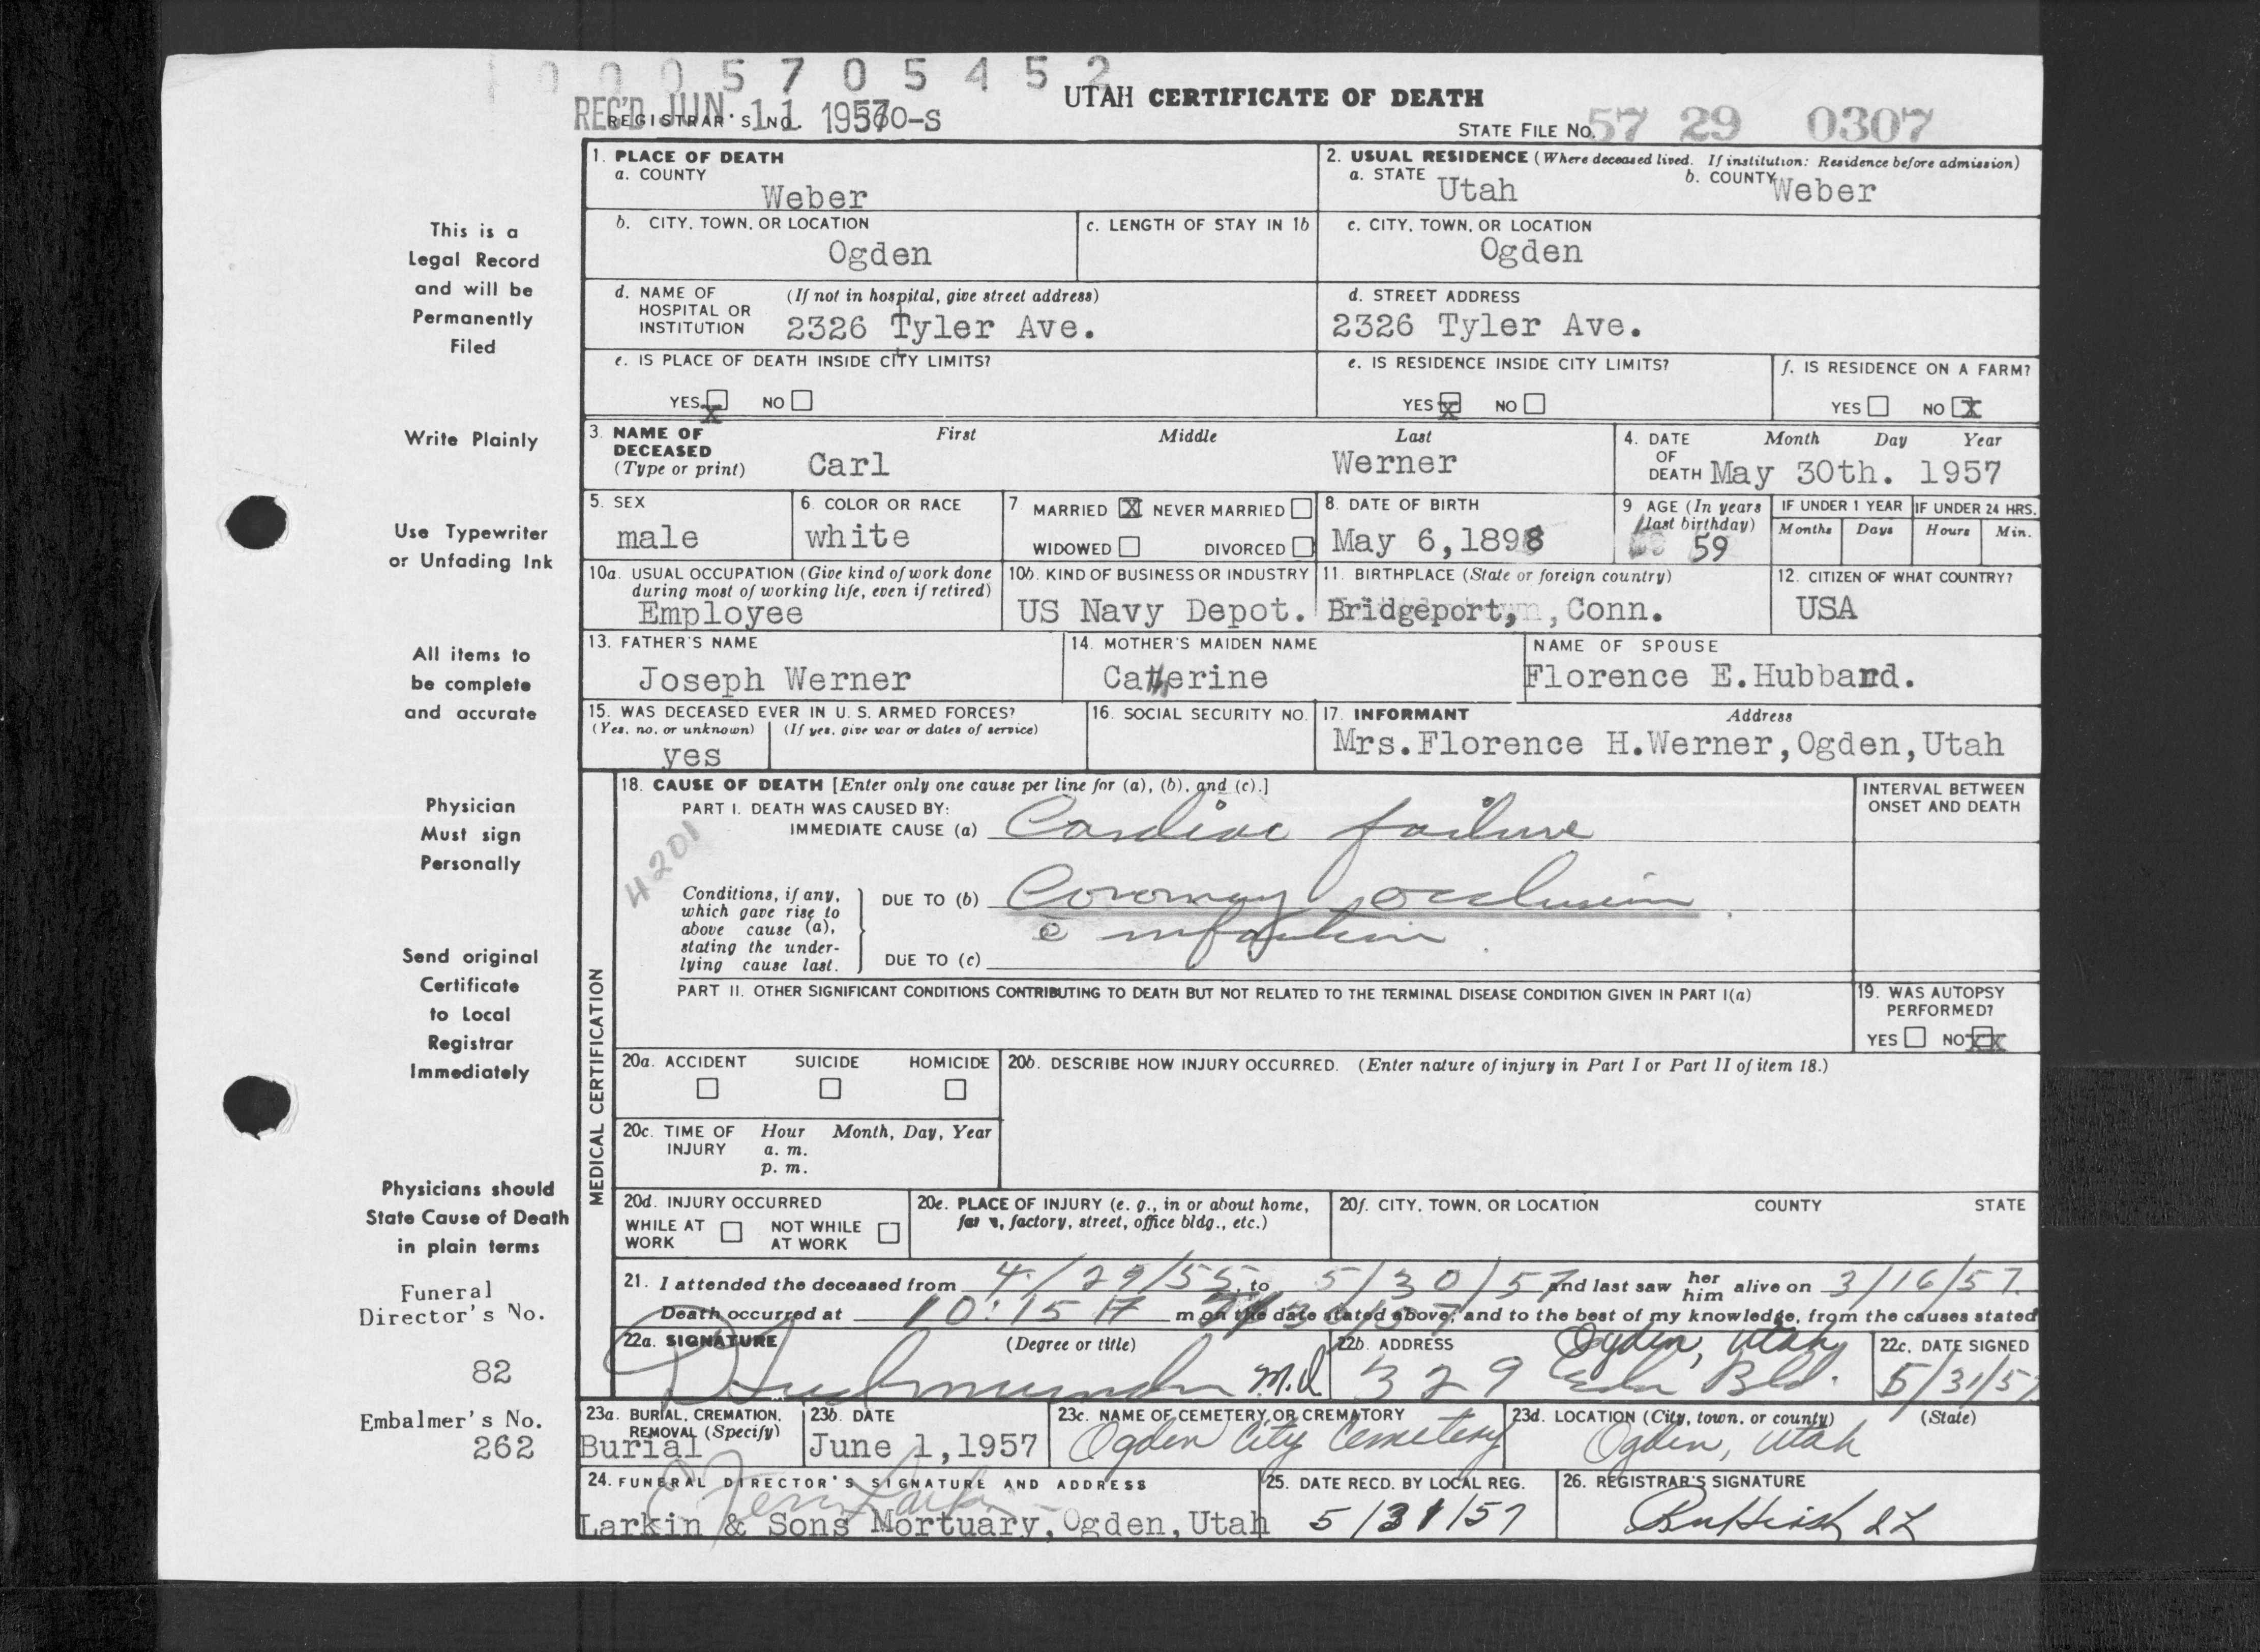 0 0 0 5 7 0 5 4 5 2
UTAH CERTIFICATE OF DEATH
REC'D JUN 11 1957
REGISTRAR'S NO. 360-S
STATE FILE NO. 57 29 0307
This is a
Legal Record
and will be
Permanently
Filed
Write Plainly
Use Typewriter
or Unfading Ink
All items to
be complete
and accurate
Physician
Must sign
Personally
Send original
Certificate
to Local
Registrar
Immediately
Physicians should
State Cause of Death
in plain terms
Funeral
Director's No.
82
Embalmer's No.
262
1. PLACE OF DEATH
a. COUNTY
Weber
2. USUAL RESIDENCE (Where deceased lived. If institution: Residence before admission)
a. STATE Utah b. COUNTY Weber
b. CITY, TOWN, OR LOCATION
Ogden
c. LENGTH OF STAY IN 1b
c. CITY, TOWN, OR LOCATION
Ogden
d. NAME OF (If not in hospital, give street address)
HOSPITAL OR
INSTITUTION 2326 Tyler Ave.
d. STREET ADDRESS
2326 Tyler Ave.
e. IS PLACE OF DEATH INSIDE CITY LIMITS?
YES X NO
e. IS RESIDENCE INSIDE CITY LIMITS?
YES X NO
f. IS RESIDENCE ON A FARM?
YES NO X
3. NAME OF First Middle Last
DECEASED
(Type or print) Carl Werner
4. DATE Month Day Year
OF
DEATH May 30th. 1957
5. SEX
male
6 COLOR OR RACE
white
7 MARRIED X NEVER MARRIED
WIDOWED DIVORCED
8. DATE OF BIRTH
May 6,1898
9 AGE (In years
last birthday)
59
IF UNDER 1 YEAR
Months Days
IF UNDER 24 HRS.
Hours Min.
10a. USUAL OCCUPATION (Give kind of work done
during most of working life, even if retired)
Employee
10b. KIND OF BUSINESS OR INDUSTRY
US Navy Depot.
11. BIRTHPLACE (State or foreign country)
Bridgeport, Conn.
12. CITIZEN OF WHAT COUNTRY?
USA
13. FATHER'S NAME
Joseph Werner
14. MOTHER'S MAIDEN NAME
Catherine
NAME OF SPOUSE
Florence E.Hubbard.
15. WAS DECEASED EVER IN U. S. ARMED FORCES?
(Yes, no, or unknown) (If yes, give war or dates of service)
yes
16. SOCIAL SECURITY NO.
17. INFORMANT Address
Mrs.Florence H.Werner,Ogden,Utah
MEDICAL CERTIFICATION
18. CAUSE OF DEATH [Enter only one cause per line for (a), (b), and (c).]
PART I. DEATH WAS CAUSED BY:
IMMEDIATE CAUSE (a) Cardiac failure
4201
INTERVAL BETWEEN
ONSET AND DEATH
Conditions, if any,
which gave rise to
above cause (a),
stating the under-
lying cause last.
DUE TO (b) Coronary occlusion
c̄ infarction
DUE TO (c)
PART II. OTHER SIGNIFICANT CONDITIONS CONTRIBUTING TO DEATH BUT NOT RELATED TO THE TERMINAL DISEASE CONDITION GIVEN IN PART I(a)
19. WAS AUTOPSY
PERFORMED?
YES NO XX
20a. ACCIDENT SUICIDE HOMICIDE
20b. DESCRIBE HOW INJURY OCCURRED. (Enter nature of injury in Part I or Part II of item 18.)
20c. TIME OF Hour Month, Day, Year
INJURY a. m.
p. m.
20d. INJURY OCCURRED
WHILE AT NOT WHILE
WORK AT WORK
20e. PLACE OF INJURY (e. g., in or about home,
farm, factory, street, office bldg., etc.)
20f. CITY, TOWN, OR LOCATION COUNTY STATE
21. I attended the deceased from 4/29/55, to 5/30/57 and last saw her him alive on 3/16/57.
Death occurred at 10:15 m on the date stated above; and to the best of my knowledge, from the causes stated
22a. SIGNATURE (Degree or title)
M.D
22b. ADDRESS Ogden, Utah
329 Bld.
22c. DATE SIGNED
5/31/57
23a. BURIAL, CREMATION,
REMOVAL (Specify)
Burial
23b. DATE
June 1,1957
23c. NAME OF CEMETERY OR CREMATORY
Ogden City Cemetery
23d. LOCATION (City, town, or county) (State)
Ogden, Utah
24. FUNERAL DIRECTOR'S SIGNATURE AND ADDRESS
Larkin & Sons Mortuary, Ogden, Utah
25. DATE RECD. BY LOCAL REG.
5/31/57
26. REGISTRAR'S SIGNATURE